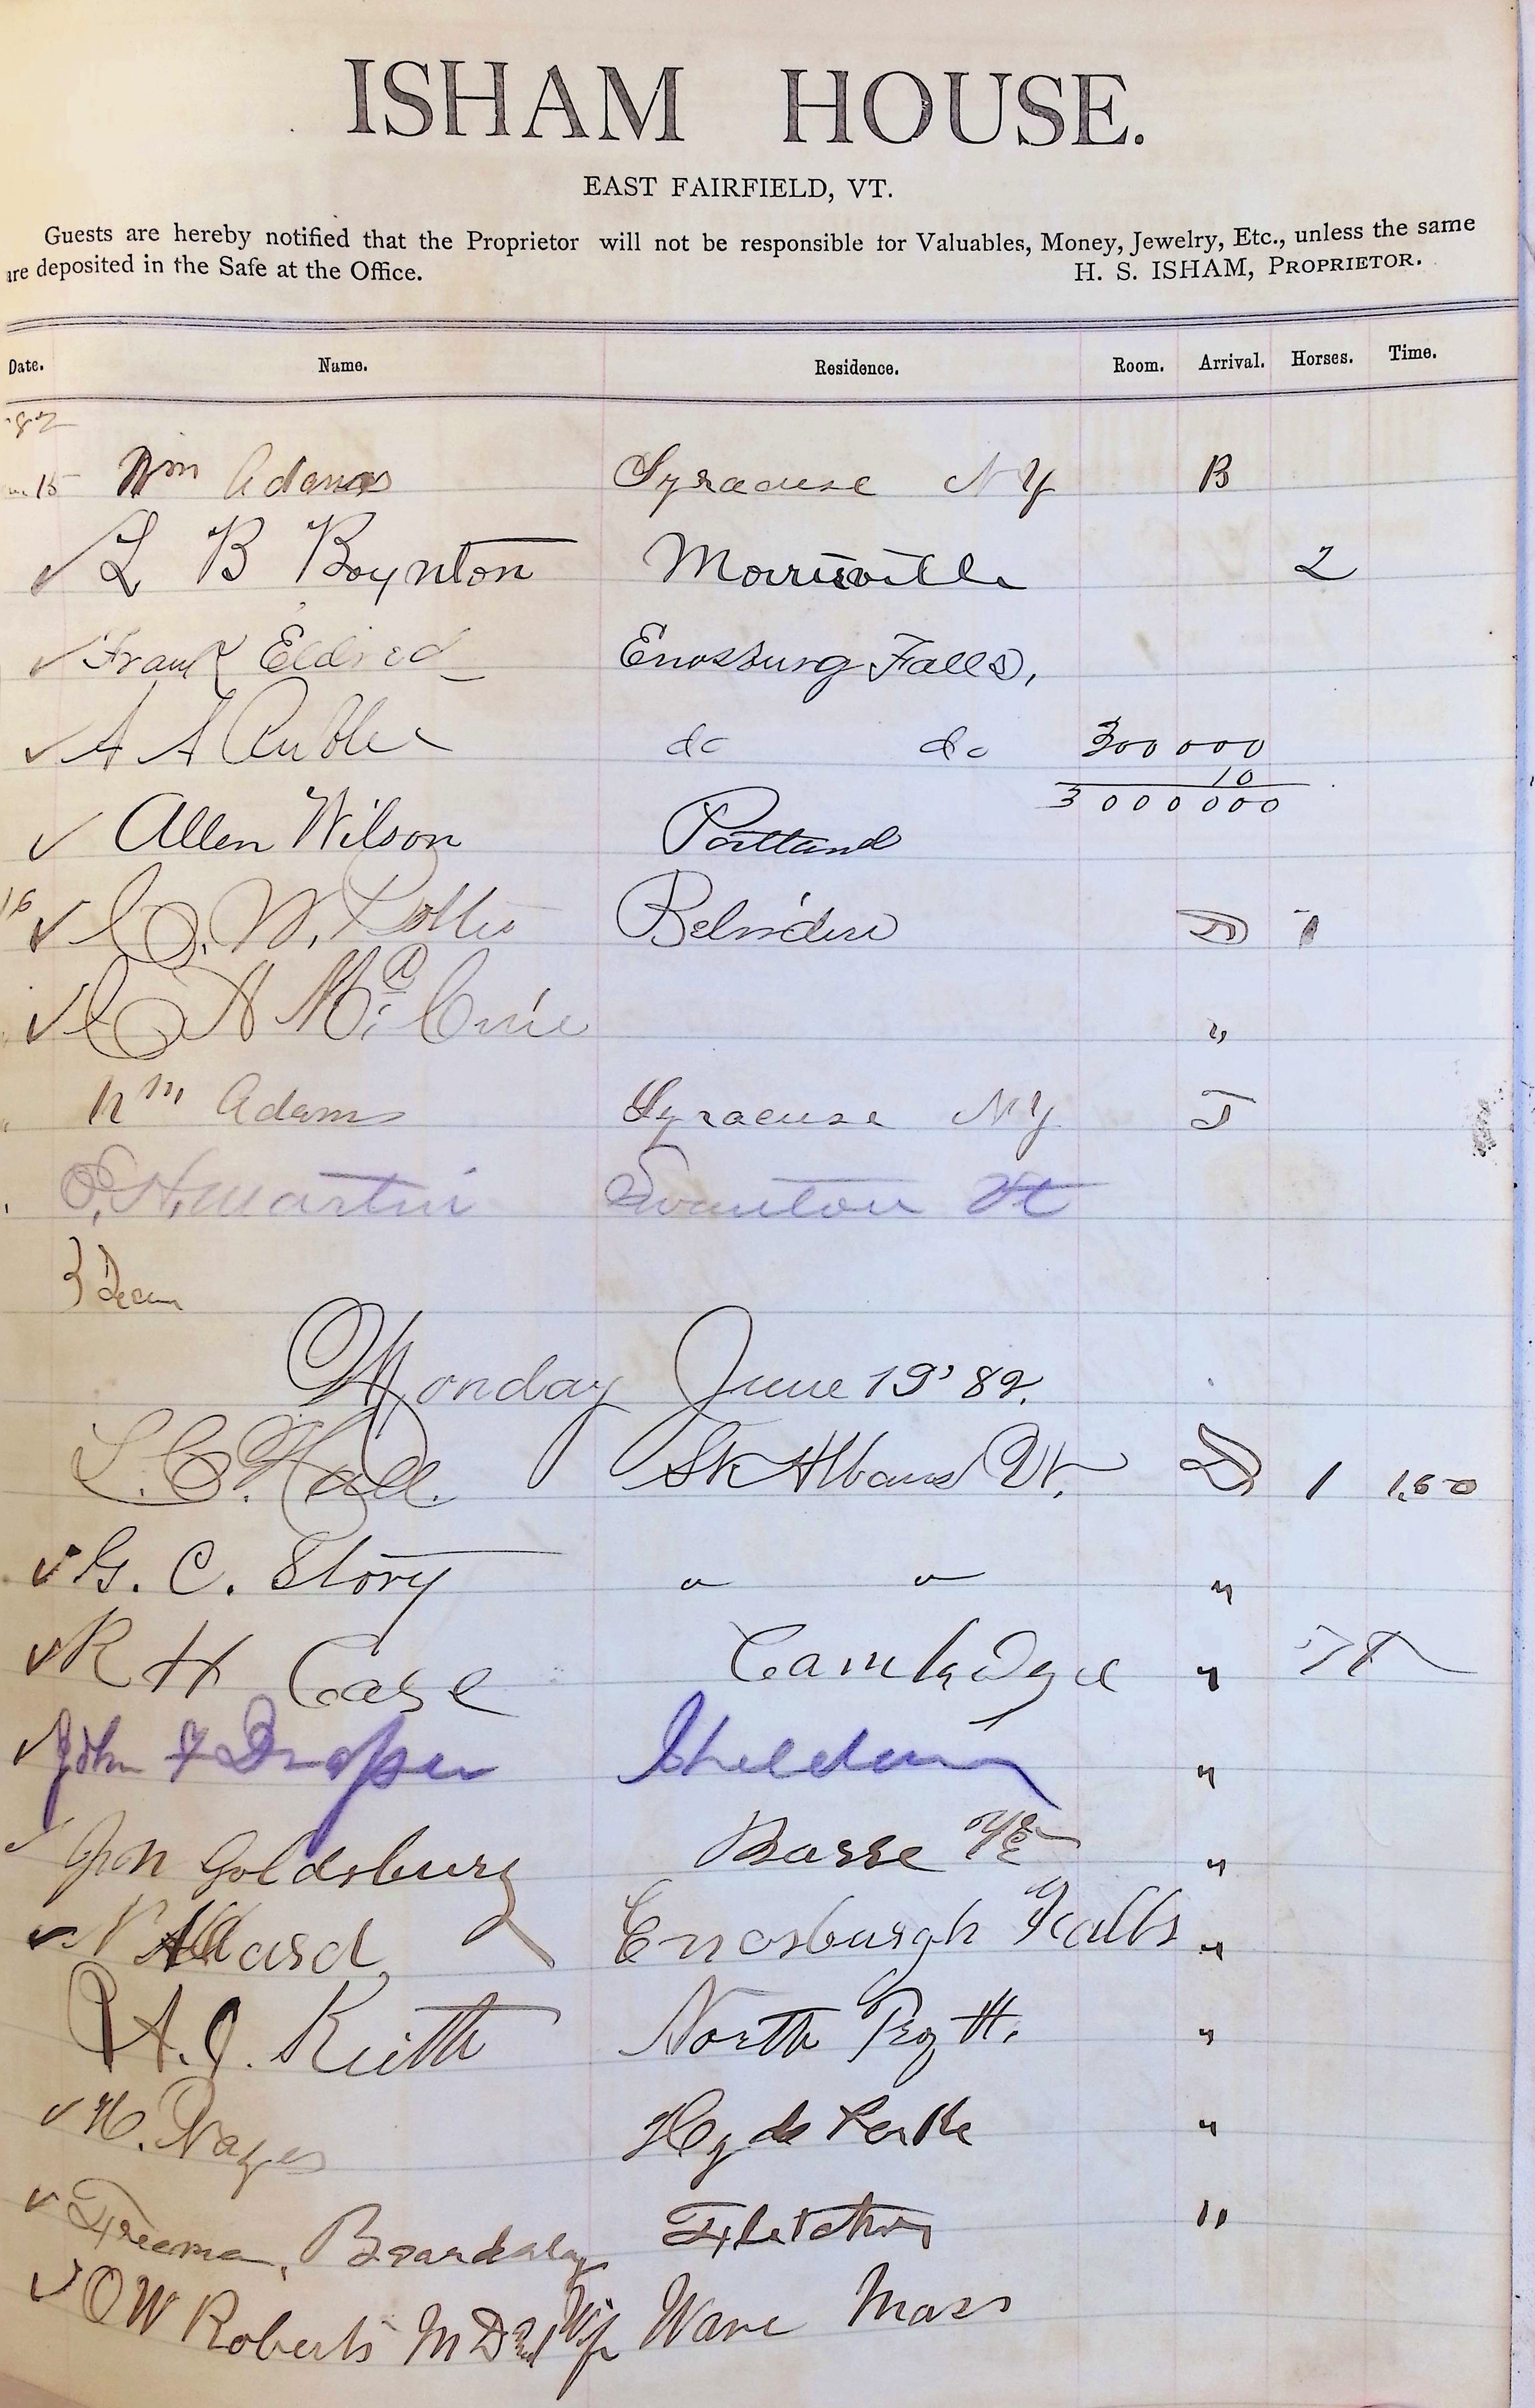 ISHAM HOUSE.
EAST FAIRFIELD, VT.
Guests are hereby notified that the Proprietor will not be responsible for Valuables, Money, Jewelry, Etc., unless the same
are deposited in the Safe at the Office. H. S. ISHAM, PROPRIETOR.
Date. Name. Residence. Room. Arrival. Horses. Time.
'82
15 Wm Adams Syracuse N Y B
L B Boynton Morrisville 2
Frank Eldred Enosburg Falls,
A A do do 300 000
10
Allen Wilson Portland 3 000 000
16 C. W. Potter Belvidere D 1
C A "
" Wm Adams Syracuse N Y T
S. H. Martin Swanton Vt
3
Monday June 19' 82.
L. C. Hall. St Albans Vt. D 1 1.50
G. C. Story " " "
R H Case Cambridge "
John F Draper Sheldon "
Jon Goldsbury Barre "
N Allard Enosburgh Falls "
A. J. Keith North "
H. Noyes Hyde Park "
Freeman Beardsley Fletcher "
O W Roberts M D and Wife Ware Mass